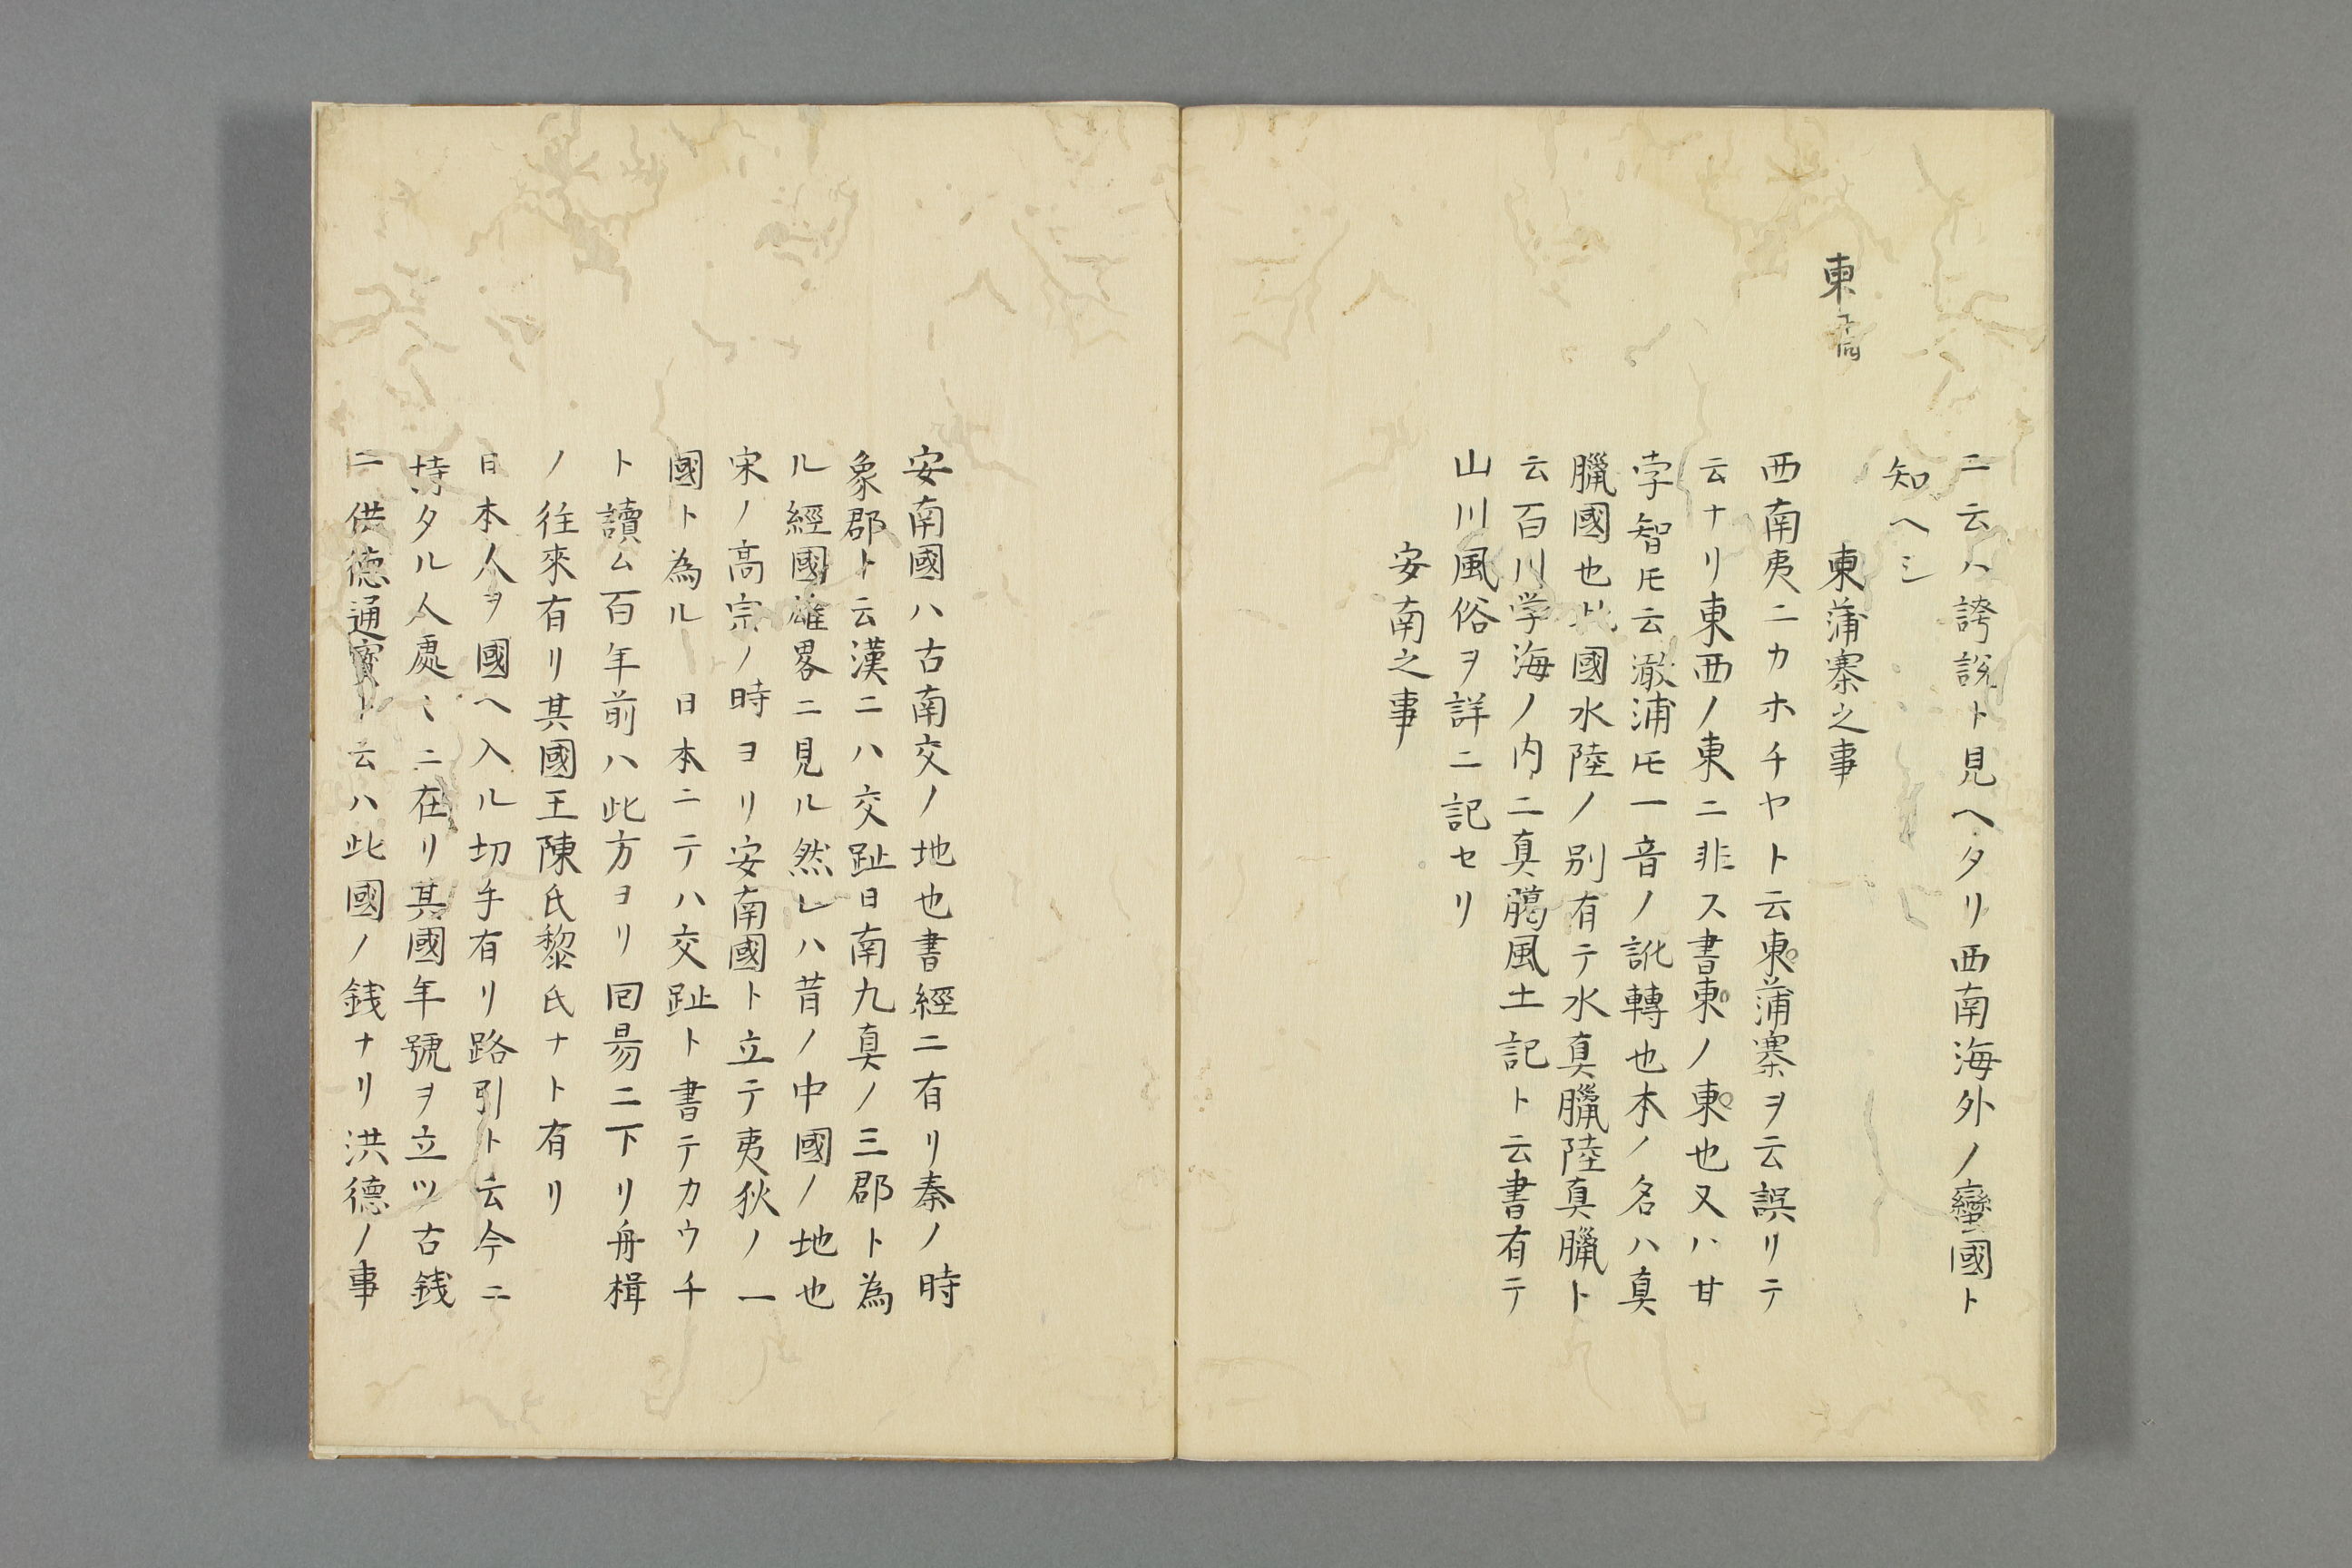 ニ云ハ誇説ト見ヘタリ西南海外ノ蠻國ト
知ヘシ
東
東蒲寨之事
西南夷ニカホチヤト云東蒲寨ヲ云誤リテ
云ナリ東西ノ東ニ非ス書東ノ東也又ハ甘
孛智氏云澉浦氏一音ノ訛轉也本ノ名ハ真
臘國也此國水陸ノ別有テ水真臘陸真臘ト
云百川学海ノ内ニ真臈風土記ト云書有テ
山川風俗ヲ詳ニ記セリ
安南之事
安南國ハ古南交ノ地也書經ニ有リ秦ノ時
象郡ト云漢ニハ交趾日南九真ノ三郡ト為
ル經國雄畧ニ見ル然レハ昔ノ中國ノ地也
宋ノ高宗ノ時ヨリ安南國ト立テ夷狄ノ一
國ト為ル 日本ニテハ交趾ト書テカウチ
ト讀ム百年前ハ此方ヨリ回昜ニ下リ舟楫
ノ往來有リ其國王陳氏黎氏ナト有リ
日本人ヲ國ヘ入ル切手有リ路引ト云今ニ
持タル人處〻ニ在リ其國年號ヲ立ツ古銭
ニ供德通寳ト云ハ此國ノ銭ナリ洪德ノ事